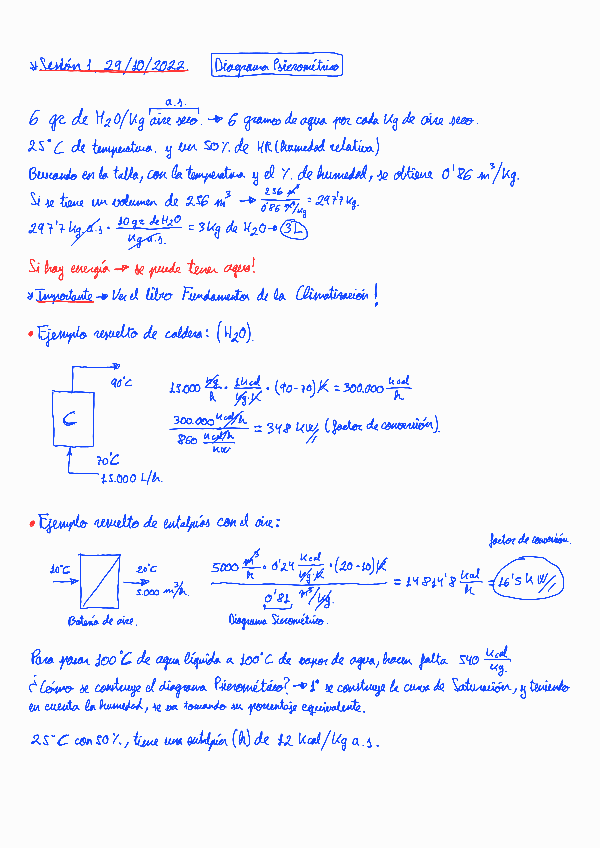 * Sesión 1 29/10/2022. Diagrama Psicrométrico
a.s.
6 gr de H2O/Kg aire seco. → 6 gramos de agua por cada Kg de aire seco.
25°C de temperatura y un 50% de HR (humedad relativa)
Buscando en la tabla, con la temperatura y el % de humedad, se obtiene 0'86 m³/Kg.
Si se tiene un volumen de 256 m³ → 256 m³ / 0'86 m³/Kg = 297'7 Kg.
297'7 Kg a.s · 10 gr de H2O / Kg a.s. = 3 Kg de H2O → 3L
Si hay energía → se puede tener agua!
* Importante → Ver el libro Fundamentos de la Climatización!
• Ejemplo resuelto de caldera: (H2O).
90°C
C
70°C
15.000 L/h.
15.000 Kg/h · 1 Kcal/Kg·K · (90-70)K = 300.000 Kcal/h
300.000 Kcal/h / 860 Kcal/h/KW = 348 KW (factor de conversión).
• Ejemplo resuelto de entalpías con el aire:
factor de conversión.
10°C
20°C
5.000 m³/h.
Batería de aire.
5000 m³/h · 0'24 Kcal/Kg·K · (20-10)K / 0'81 m³/Kg. = 14814'8 Kcal/h = 16'5 KW
Diagrama Sicrométrico.
Para pasar 100°C de agua líquida a 100°C de vapor de agua, hacen falta 540 Kcal/Kg.
¿Cómo se construye el diagrama Psicrométrico? → 1° se construye la curva de Saturación, y teniendo
en cuenta la humedad, se va tomando su porcentaje equivalente.
25°C con 50%, tiene una entalpía (h) de 12 Kcal/Kg a.s.